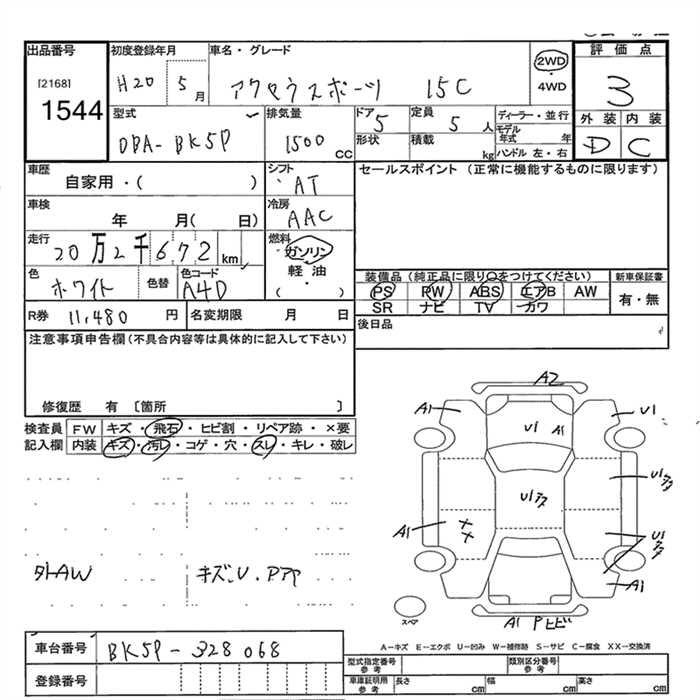 出品番号
[2168]
1544
初度登録年月
H20 5月
車名・グレード
アクセラスポーツ 15C
2WD
・
4WD
評価点
3
外装 内装
D C
型式
DBA-BK5P
排気量
1500 CC
ドア
5
形状
定員
5人
積載
kg
ディーラー・並行
モデル年式 年
ハンドル 左・右
車歴
自家用・( )
シフト
AT
車検
年 月( 日)
冷房
AAC
走行
20万2千672 km
燃料
ガソリン
・
軽油
・
( )
色
ホワイト
色替
色コード
A4D
R券 11,480 円
名変期限 月 日
セールスポイント (正常に機能するものに限ります)
装備品(純正品に限り○をつけてください)
新車保証書
PS PW ABS エアB AW
SR ナビ TV カワ
有・無
後日品
注意事項申告欄(不具合内容等は具体的に記入して下さい)
修復歴 有 〔箇所 〕
検査員
記入欄
FW キズ・飛石・ヒビ割・リペア跡・×要
内装 キズ・汚レ・コゲ・穴・スレ・キレ・破レ
外AW
キズ、U・Pアア
A2
A1
U1
U1
A1
U1アタ
U1アタ
A1
××
U1アタ
A1
A1 Pヒビ
スペア
A-キズ E-エクボ U-凹み W-補修跡 S-サビ C-腐食 XX-交換済
車台番号 BK5P-328068
登録番号
型式指定番号
参考
類別区分番号
参考
車庫証明用
参考
長さ cm
幅 cm
高さ cm